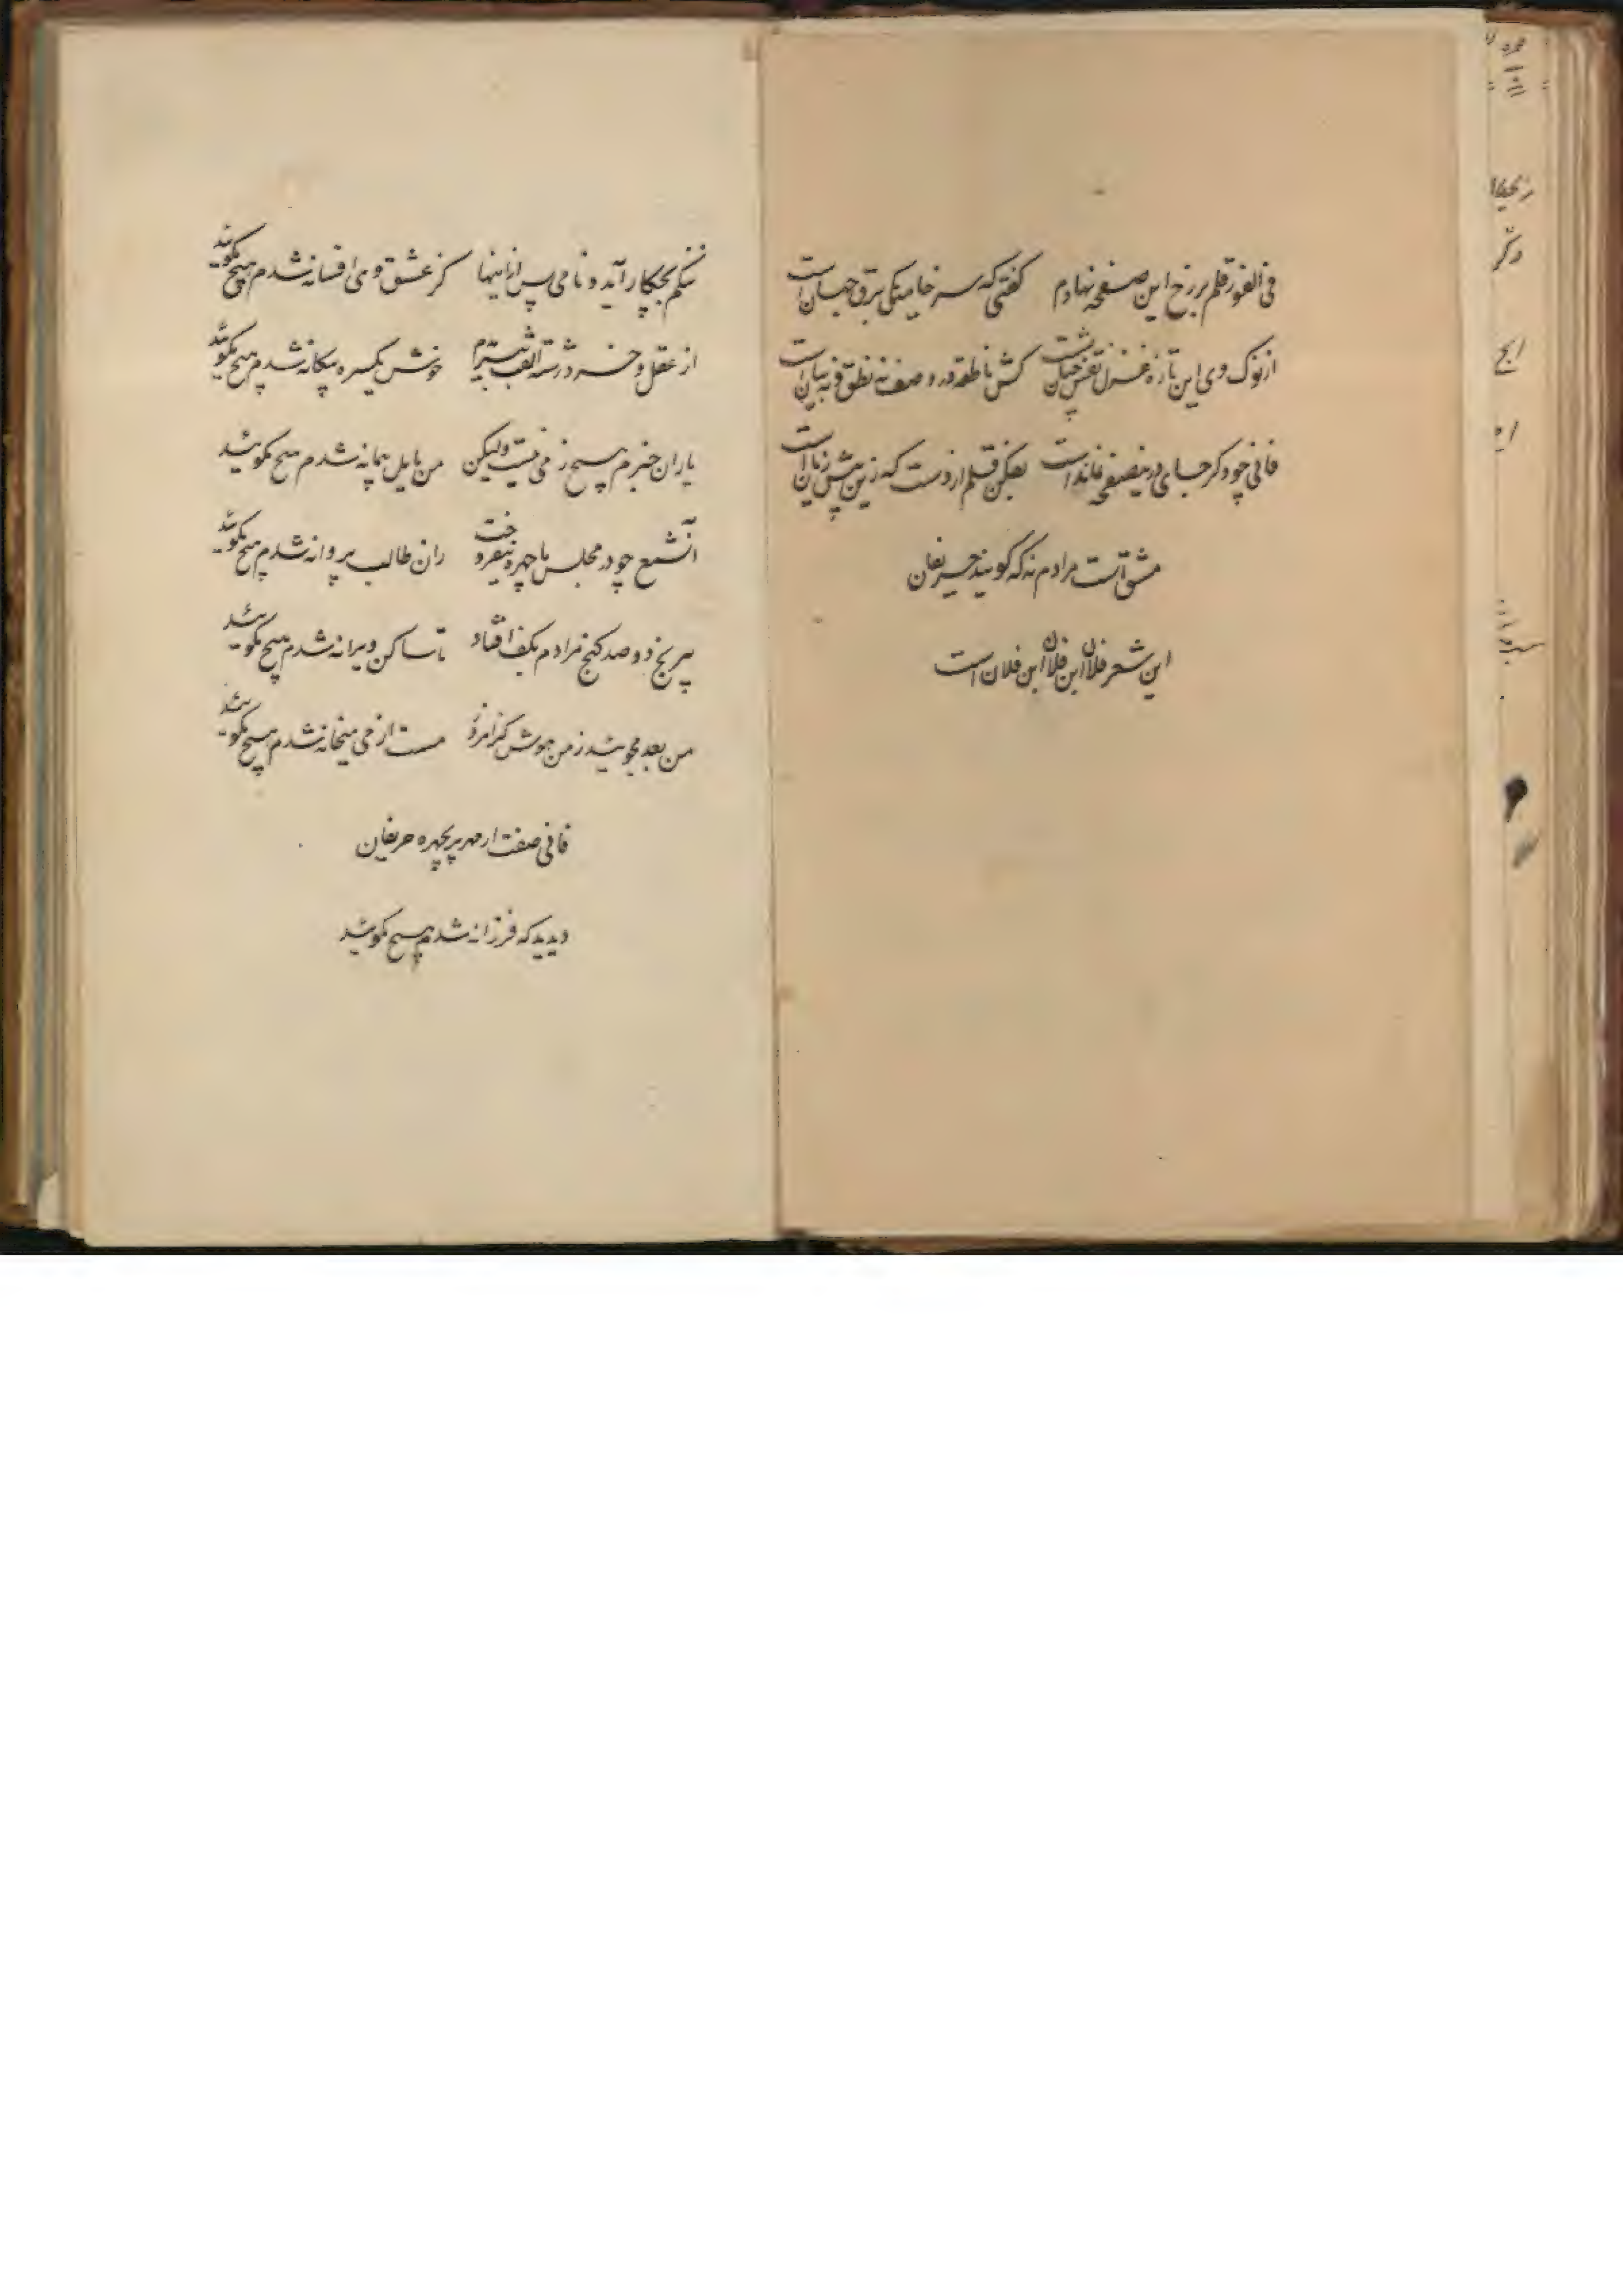 فی الفور قلم بر رخ این صفحه نهادم گفتی که سر خامه یکی برق جهان است
از نوک وی این تازه غزل نقش چنان بست کش ناطقه در وصف نه نطق و نه بیان است
فانی چو دگر جای درینصفحه نماند است بفکن قلم از دست که زین بیش زیان است
مشق است مرادم نه که گویند حریفان
این شعر فلان ابن فلان ابن فلان است
ننگم بچکار آید و نامی پس ازاینها کز عشق وی افسانه شدم هیچ مگوئید
از عقل و خرد رشته الفت ببریدم خوش یکسره بیگانه شدم هیچ مگوئید
یاران خبرم هیچ ز می نیست ولیکن من مایل پیمانه شدم هیچ مگوئید
آنشمع چو در مجلس ما چهره بیفروخت زان طالب پروانه شدم هیچ مگوئید
بیرنج دو صد گنج مرادم بکف افتاد تا ساکن ویرانه شدم هیچ مگوئید
من بعد مجوئید ز من هوش کز امروز مست از می میخانه شدم هیچ مگوئید
فانی صفت از مهر پریچهره حریفان
دیدید که فرزانه شدم هیچ مگوئید